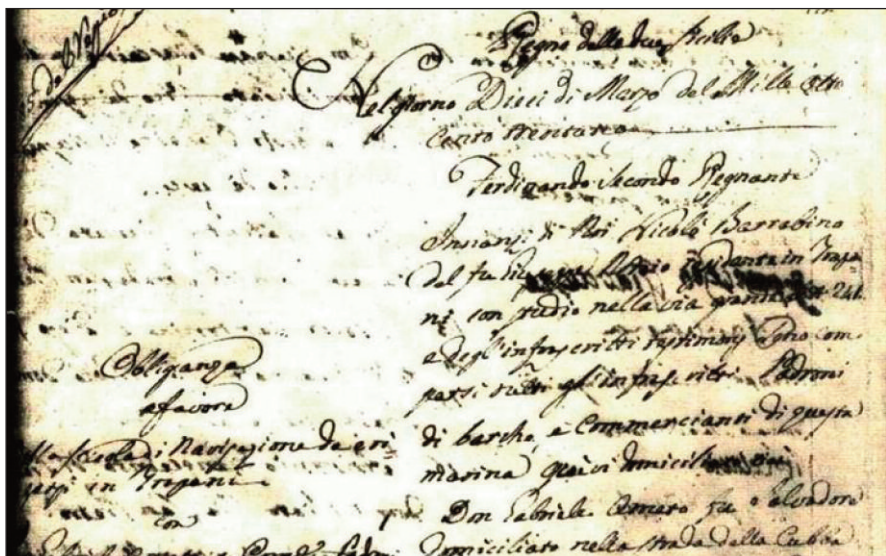 Regno delle due Sicilie
Nel giorno Dieci di Marzo del Mille otto
cento trentatre
Ferdinando Secondo Regnante
Innanzi di Noi Nicolò Barrabino
del fu Notaio residente in Trapa
ni con studio nella via grande 241
e degl'infrascritti testimonj sono com
parsi tutti gl'infrascritti Padroni
di barche, e Commercianti di questa
marina quivi domiciliati
Don Gabriele Amato fu Salvadore
domiciliato nella strada della Cubba
Obliganza
a favore
della scuola di Navigazione da eri
gersi in Trapani
con